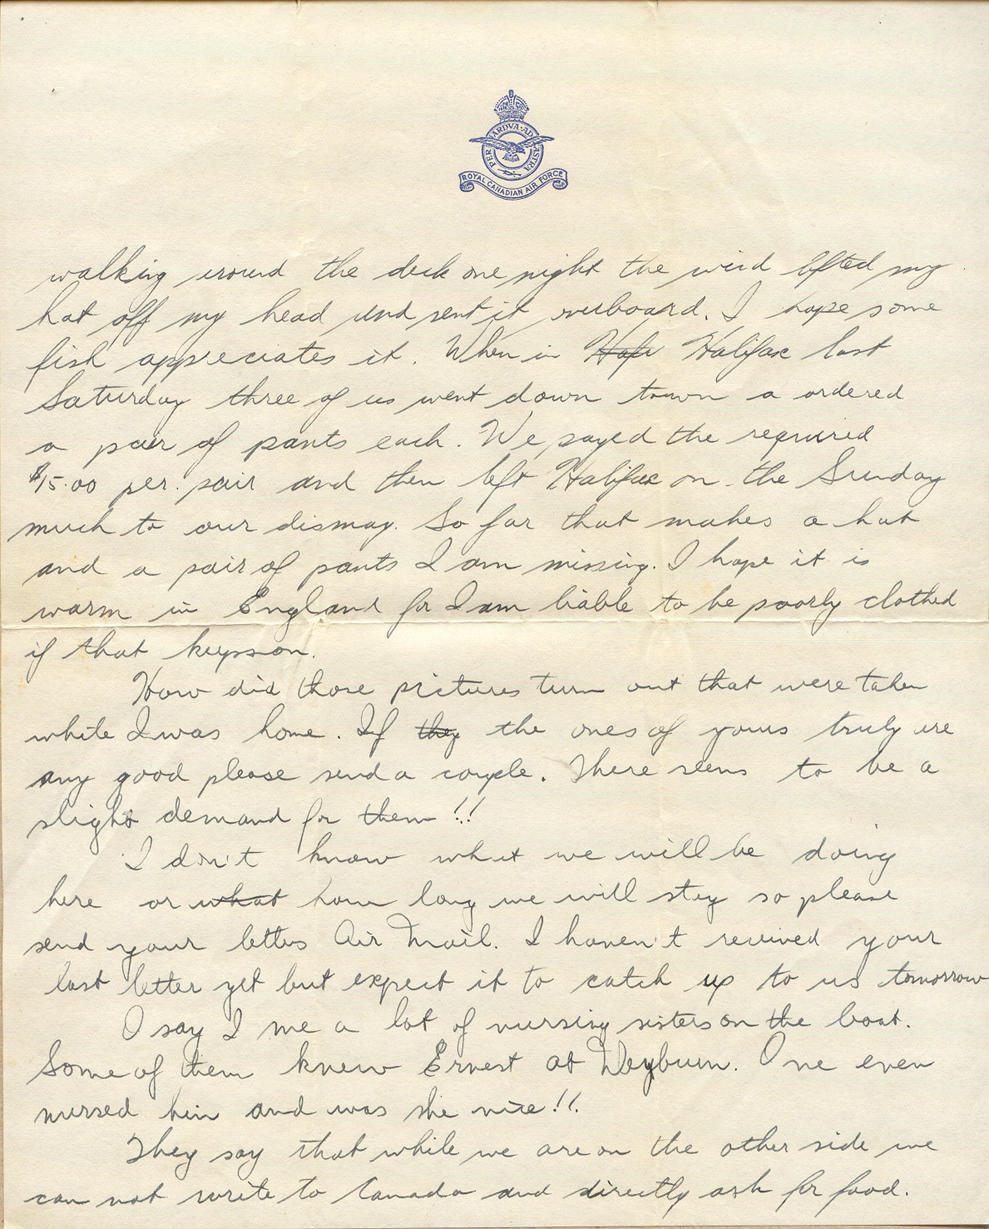 PER ARDVA AD ASTRA
ROYAL CANADIAN AIR FORCE
walking around the deck one night the wind lifted my
hat off my head and sent it overboard. I hope some
fish appreciates it. When in Hafi Halifax last
Saturday three of us went down town a ordered
a pair of pants each. We payed the required
$15.00 per. pair and then left Halifax on the Sunday
much to our dismay. So far that makes a hat
and a pair of pants I am missing. I hope it is
warm in England for I am liable to be poorly clothed
if that keeps on.
How did those pictures turn out that were taken
while I was home. If they the ones of yours truly are
any good please send a couple. There seems to be a
slight demand for them!!
I don't know what we will be doing
here or what how long we will stay so please
send your letters Air Mail. I haven't received your
last letter yet but expect it to catch up to us tomorrow
O say I me a lot of nursing sisters on the boat.
Some of them knew Ernest at Weyburn. One even
nursed him and was she nice!!
They say that while we are on the other side we
can not write to Canada and directly ask for food.